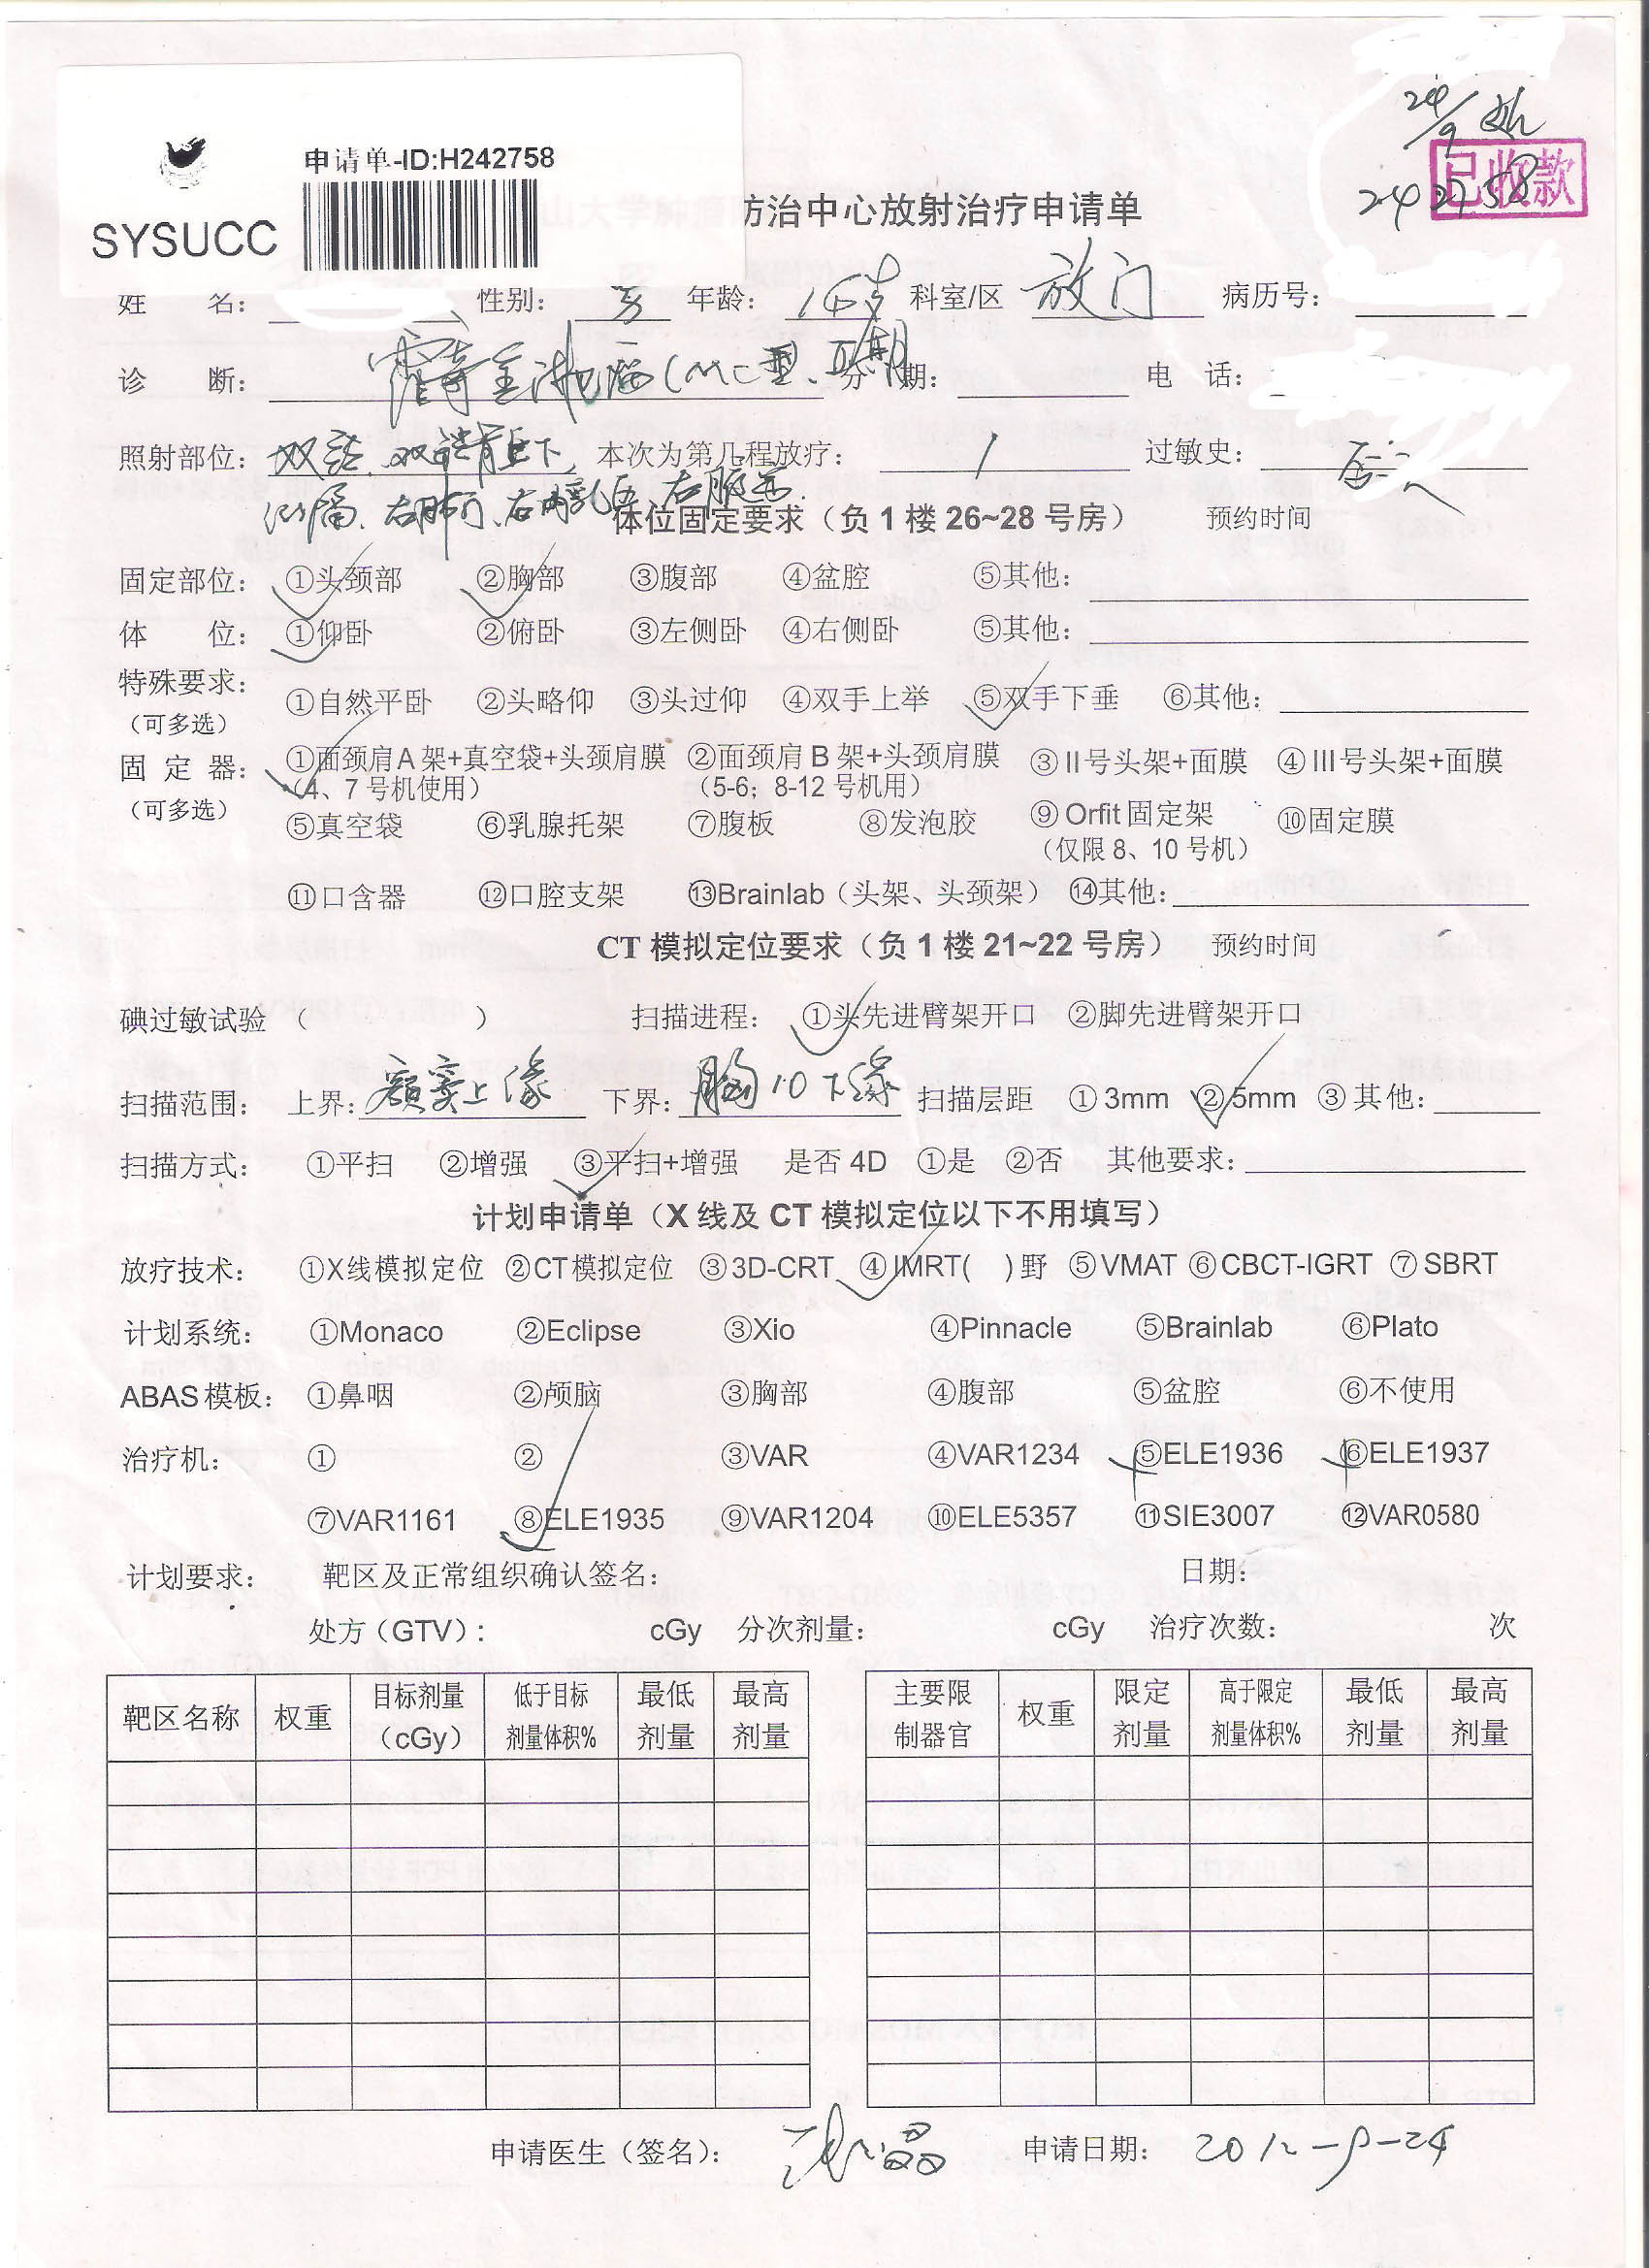 24/9
申请单-ID:H242758
已收款
242758
SYSUCC
防治中心放射治疗申请单
姓 名: 性别: 男 年龄: 14岁 科室/区 放门 病历号:
诊 断: 霍奇金淋巴瘤(MC型、II期 分 期: 电 话:
照射部位: 双颈、双锁骨上下、 本次为第几程放疗: 1 过敏史:
纵隔、右肺门、右内乳区、右腋下.
体位固定要求(负1楼26~28号房) 预约时间
固定部位: ①头颈部 ②胸部 ③腹部 ④盆腔 ⑤其他:
体 位: ①仰卧 ②俯卧 ③左侧卧 ④右侧卧 ⑤其他:
特殊要求: ①自然平卧 ②头略仰 ③头过仰 ④双手上举 ⑤双手下垂 ⑥其他:
(可多选)
固 定 器: ①面颈肩A架+真空袋+头颈肩膜 ②面颈肩B架+头颈肩膜 ③II号头架+面膜 ④III号头架+面膜
(可多选) (4、7号机使用) (5-6;8-12号机用)
⑤真空袋 ⑥乳腺托架 ⑦腹板 ⑧发泡胶 ⑨Orfit固定架 ⑩固定膜
(仅限8、10号机)
⑪口含器 ⑫口腔支架 ⑬Brainlab(头架、头颈架) ⑭其他:
CT模拟定位要求(负1楼21~22号房) 预约时间
碘过敏试验 ( ) 扫描进程: ①头先进臂架开口 ②脚先进臂架开口
扫描范围: 上界: 额窦上缘 下界: 胸10下缘 扫描层距 ①3mm ②5mm ③其他:
扫描方式: ①平扫 ②增强 ③平扫+增强 是否4D ①是 ②否 其他要求:
计划申请单(X线及CT模拟定位以下不用填写)
放疗技术: ①X线模拟定位 ②CT模拟定位 ③3D-CRT ④IMRT( )野 ⑤VMAT ⑥CBCT-IGRT ⑦SBRT
计划系统: ①Monaco ②Eclipse ③Xio ④Pinnacle ⑤Brainlab ⑥Plato
ABAS模板: ①鼻咽 ②颅脑 ③胸部 ④腹部 ⑤盆腔 ⑥不使用
治疗机: ① ② ③VAR ④VAR1234 ⑤ELE1936 ⑥ELE1937
⑦VAR1161 ⑧ELE1935 ⑨VAR1204 ⑩ELE5357 ⑪SIE3007 ⑫VAR0580
计划要求: 靶区及正常组织确认签名: 日期:
处方(GTV): cGy 分次剂量: cGy 治疗次数: 次
靶区名称 权重 目标剂量(cGy) 低于目标剂量体积% 最低剂量 最高剂量
主要限制器官 权重 限定剂量 高于限定剂量体积% 最低剂量 最高剂量
申请医生(签名): 申请日期: 2012-9-24